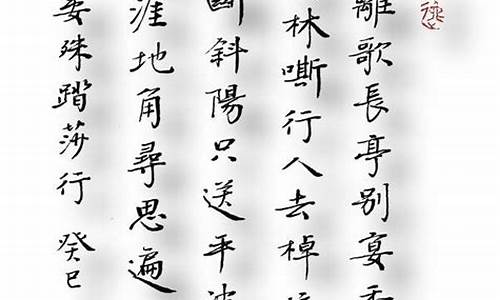 離歌長亭別宴
林嘶行人去棹
斷斜陽只送平波
涯地角尋思遍
晏殊踏莎行 癸巳